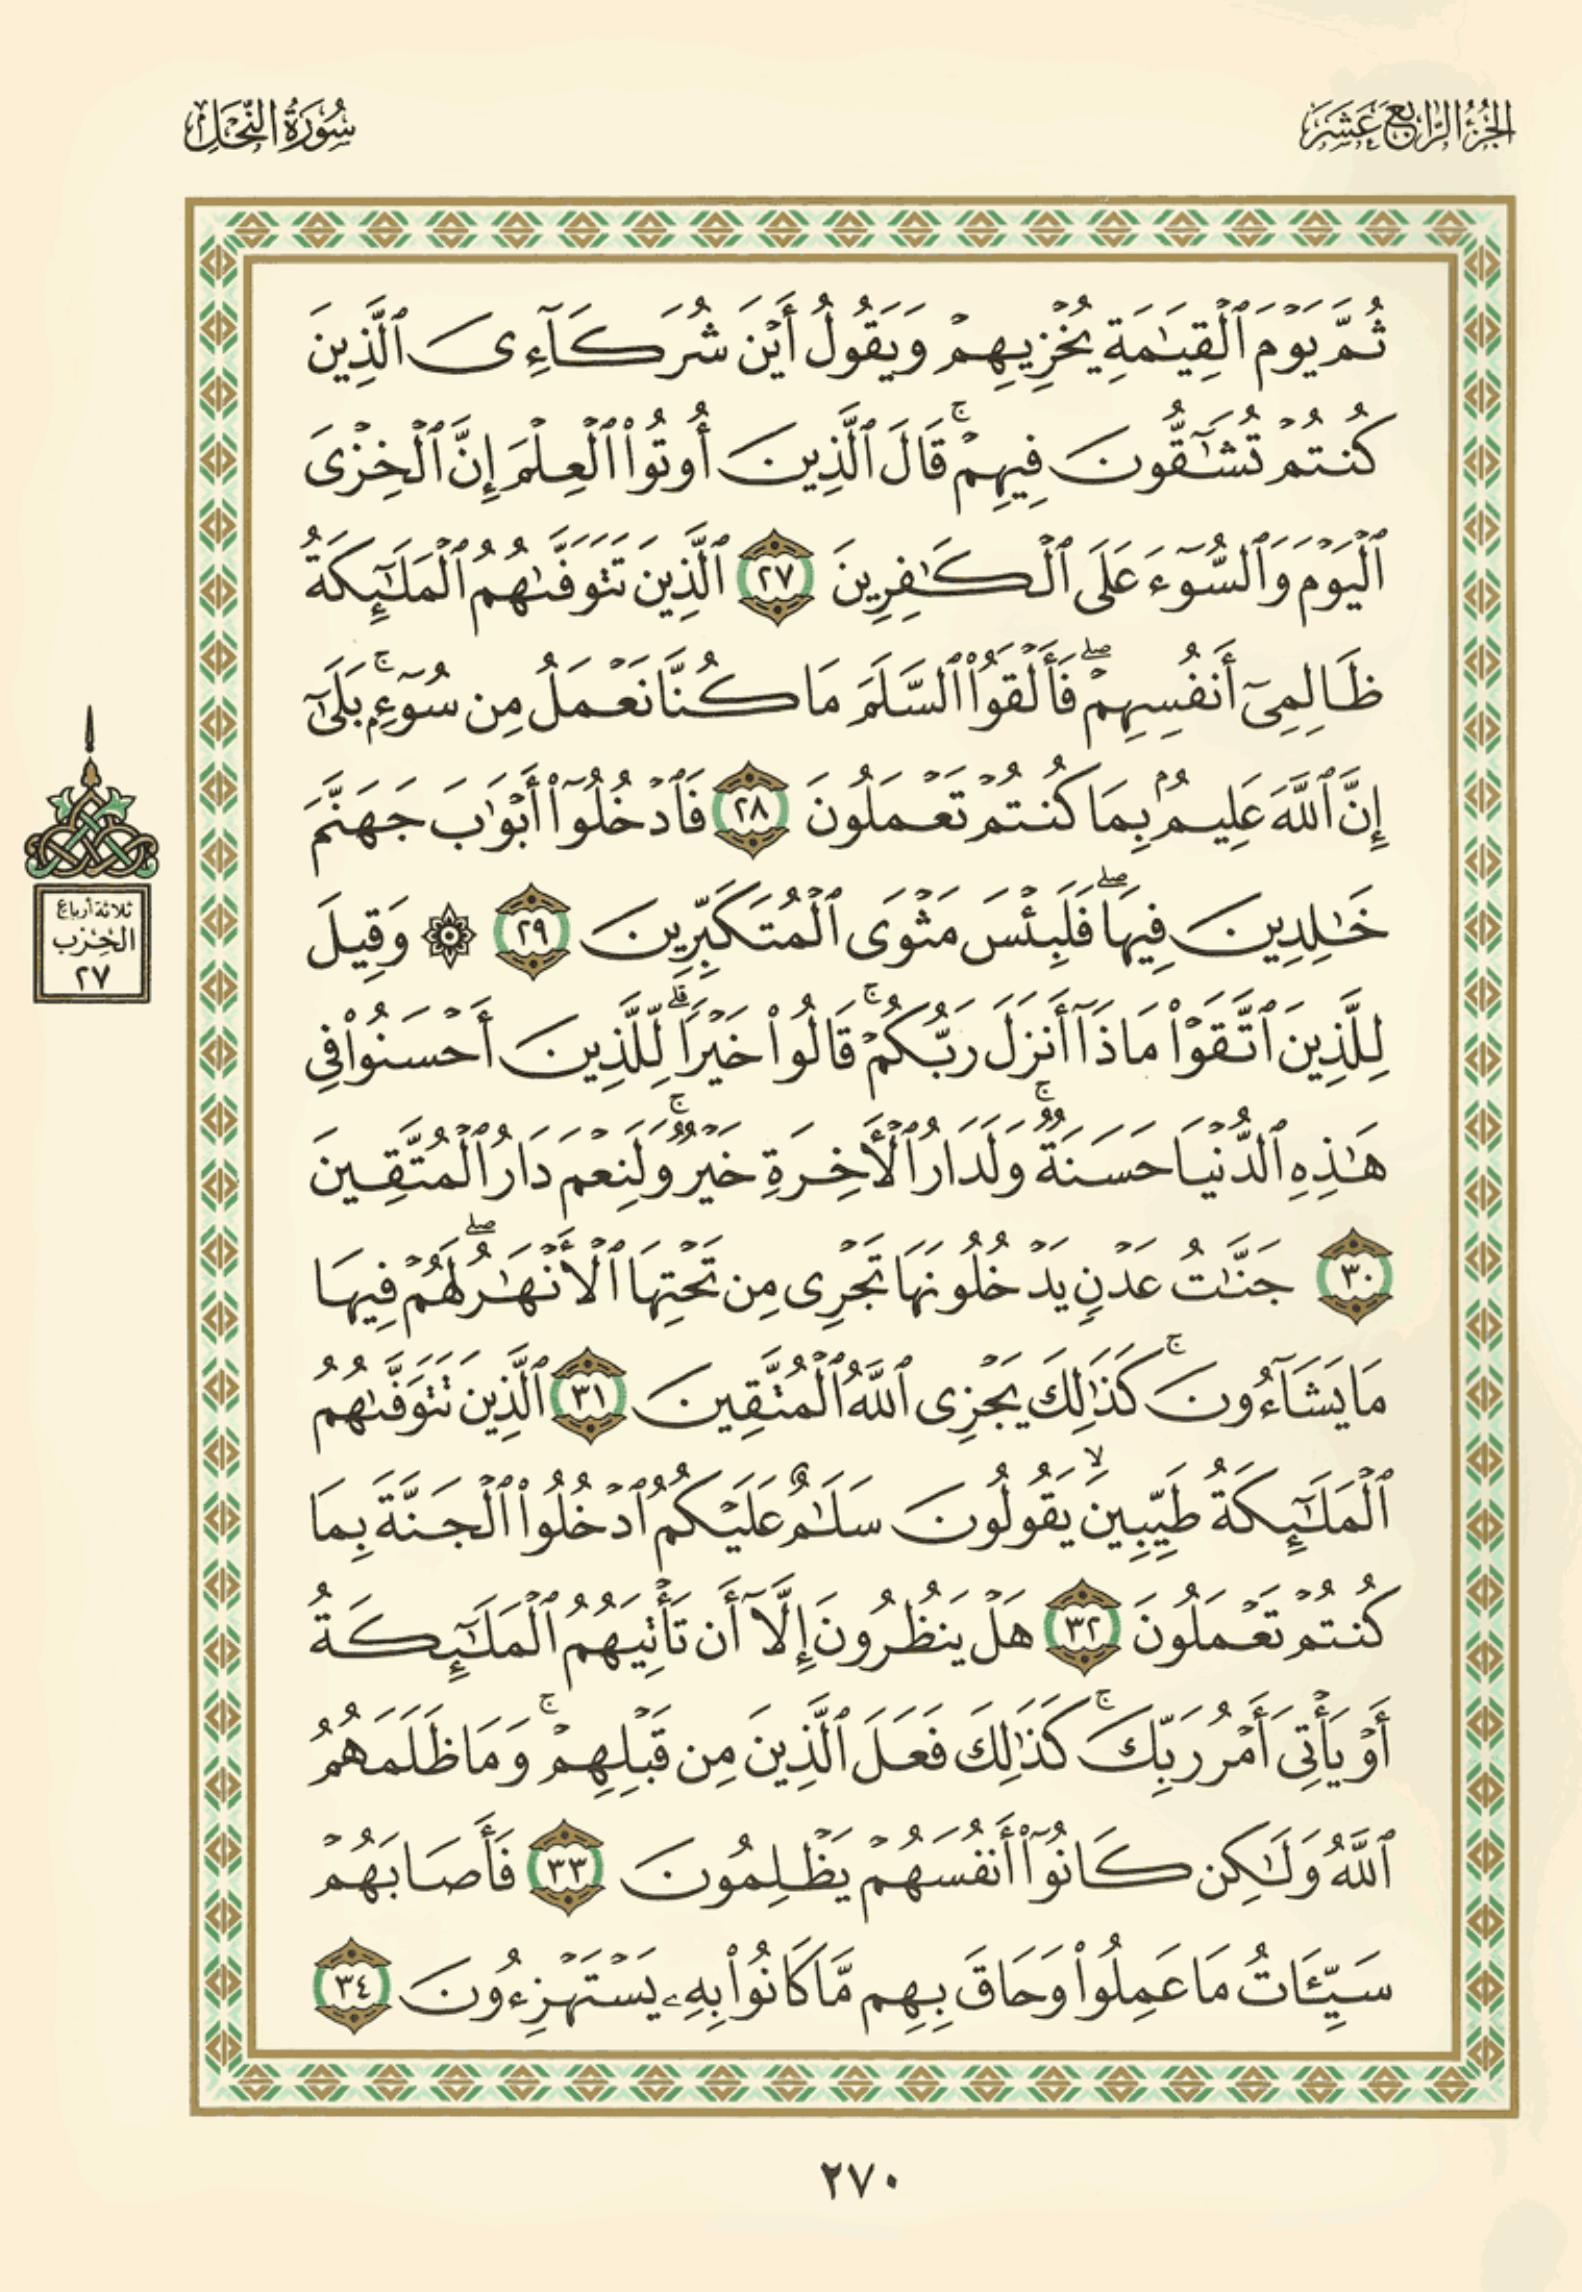 الجُزْءُ الرَّابِعَ عَشَرَ
سُورَةُ النَّحْلِ
ثُمَّ يَوْمَ ٱلْقِيَـٰمَةِ يُخْزِيهِمْ وَيَقُولُ أَيْنَ شُرَكَآءِىَ ٱلَّذِينَ
كُنتُمْ تُشَـٰٓقُّونَ فِيهِمْ ۚ قَالَ ٱلَّذِينَ أُوتُوا۟ ٱلْعِلْمَ إِنَّ ٱلْخِزْىَ
ٱلْيَوْمَ وَٱلسُّوٓءَ عَلَى ٱلْكَـٰفِرِينَ ٢٧ ٱلَّذِينَ تَتَوَفَّىٰهُمُ ٱلْمَلَـٰٓئِكَةُ
ظَالِمِىٓ أَنفُسِهِمْ ۖ فَأَلْقَوُا۟ ٱلسَّلَمَ مَا كُنَّا نَعْمَلُ مِن سُوٓءٍۭ ۚ بَلَىٰٓ
إِنَّ ٱللَّهَ عَلِيمٌۢ بِمَا كُنتُمْ تَعْمَلُونَ ٢٨ فَٱدْخُلُوٓا۟ أَبْوَٰبَ جَهَنَّمَ
خَـٰلِدِينَ فِيهَا ۖ فَلَبِئْسَ مَثْوَى ٱلْمُتَكَبِّرِينَ ٢٩ ۞ وَقِيلَ
لِلَّذِينَ ٱتَّقَوْا۟ مَاذَآ أَنزَلَ رَبُّكُمْ ۚ قَالُوا۟ خَيْرًا ۗ لِّلَّذِينَ أَحْسَنُوا۟ فِى
هَـٰذِهِ ٱلدُّنْيَا حَسَنَةٌ ۚ وَلَدَارُ ٱلْـَٔاخِرَةِ خَيْرٌ ۚ وَلَنِعْمَ دَارُ ٱلْمُتَّقِينَ
٣٠ جَنَّـٰتُ عَدْنٍ يَدْخُلُونَهَا تَجْرِى مِن تَحْتِهَا ٱلْأَنْهَـٰرُ ۖ لَهُمْ فِيهَا
مَا يَشَآءُونَ ۚ كَذَٰلِكَ يَجْزِى ٱللَّهُ ٱلْمُتَّقِينَ ٣١ ٱلَّذِينَ تَتَوَفَّىٰهُمُ
ٱلْمَلَـٰٓئِكَةُ طَيِّبِينَ ۙ يَقُولُونَ سَلَـٰمٌ عَلَيْكُمُ ٱدْخُلُوا۟ ٱلْجَنَّةَ بِمَا
كُنتُمْ تَعْمَلُونَ ٣٢ هَلْ يَنظُرُونَ إِلَّآ أَن تَأْتِيَهُمُ ٱلْمَلَـٰٓئِكَةُ
أَوْ يَأْتِىَ أَمْرُ رَبِّكَ ۚ كَذَٰلِكَ فَعَلَ ٱلَّذِينَ مِن قَبْلِهِمْ ۚ وَمَا ظَلَمَهُمُ
ٱللَّهُ وَلَـٰكِن كَانُوٓا۟ أَنفُسَهُمْ يَظْلِمُونَ ٣٣ فَأَصَابَهُمْ
سَيِّـَٔاتُ مَا عَمِلُوا۟ وَحَاقَ بِهِم مَّا كَانُوا۟ بِهِۦ يَسْتَهْزِءُونَ ٣٤
ثلاثة أرباع
الحِزْب
٢٧
٢٧٠